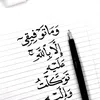 وَمَا تَوْفِيقِي
إِلَّا بِاللَّهِ ج
عَلَيْهِ
تَوَكَّلْتُ
وَإِلَيْهِ